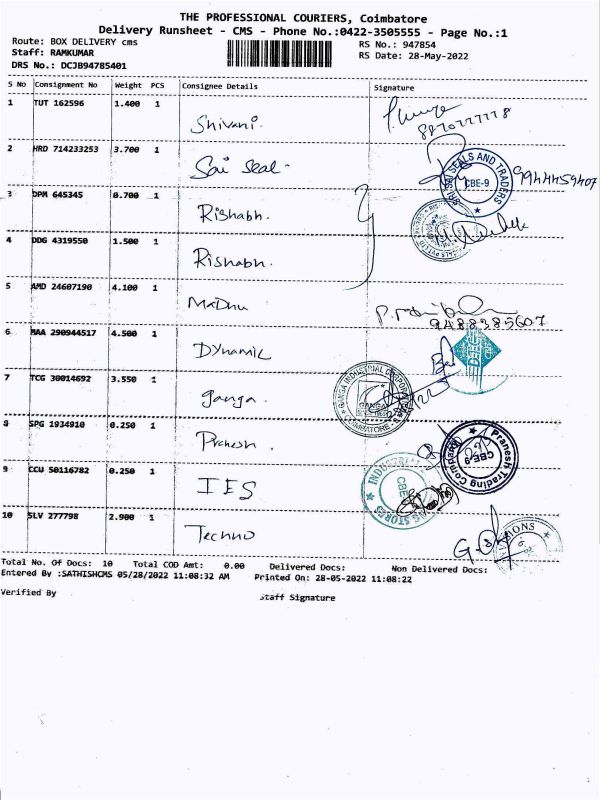 THE PROFESSIONAL COURIERS, Coimbatore
Delivery Runsheet - CMS - Phone No.:0422-3505555 - Page No.:1
Route: BOX DELIVERY cms RS No.: 947854
Staff: RAMKUMAR RS Date: 28-May-2022
DRS No.: DCJB94785401
S No Consignment No Weight PCS Consignee Details Signature
1 TUT 162596 1.400 1 Shivani.
2 HRD 714233253 3.700 1 Sai Seal. SEALS AND TRADERS CBE-9 9944459407
3 DPM 645345 0.700 1 Rishabh.
4 DDG 4319550 1.500 1 Rishabh.
5 AMD 24607190 4.100 1 Madhu 9488385607
6 MAA 290944517 4.500 1 Dynamic
7 TCG 30014692 3.550 1 Ganga. GANGA INDUSTRIAL CORPORATION GANGA COIMBATORE
8 SPG 1934910 0.250 1 Pranesh. Pranesh Trading Company CBE-9
9 CCU 50116782 0.250 1 IES INDUSTRIAL STORES CBE
10 SLV 277798 2.900 1 Techno
Total No. Of Docs: 10 Total COD Amt: 0.00 Delivered Docs: Non Delivered Docs:
Entered By :SATHISHCMS 05/28/2022 11:08:32 AM Printed On: 28-05-2022 11:08:22
Verified By Staff Signature